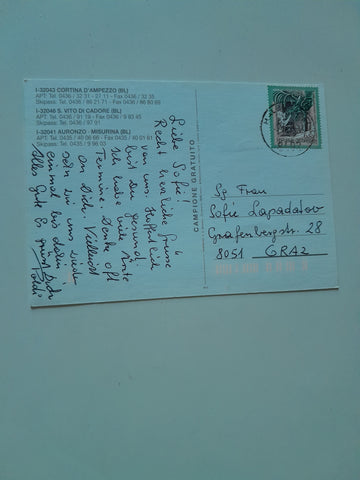 I-32043 CORTINA D'AMPEZZO (BL)
APT: Tel. 0436 / 32 31 - 27 11 - Fax 0436 / 32 35
Skipass: Tel. 0436 / 86 21 71 - Fax 0436 / 86 80 69
I-32046 S. VITO DI CADORE (BL)
APT: Tel. 0436 / 91 19 - Fax 0436 / 9 93 45
Skipass: Tel. 0436 / 97 91
I-32041 AURONZO - MISURINA (BL)
APT: Tel. 0435 / 40 06 66 - Fax 0435 / 40 01 61
Skipass: Tel. 0435 / 9 96 03
Liebe Sofie!
Recht herzliche Grüsse
von uns. Hoffentlich
bist Du gesund.
Ich habe viele Ärzte
Termine. Denke oft
an Dich. Vielleicht
seh'n wir uns wieder
einmal bis dahin
Alles Gute Es grüsst Dich
Poldi
CAMPIONE GRATUITO
Sg. Frau
Sofie Lapadatov
Grafenbergstr. 28
8051 GRAZ